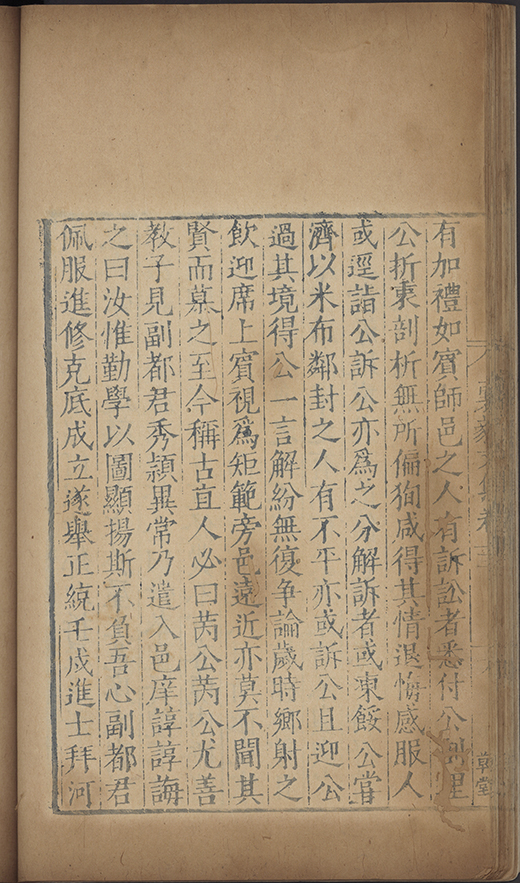 有加禮如賓師邑之人有訴訟者悉付公剖理
公折衷剖析無所偏狥咸得其情退悔感服人
或逕詣公訴公亦爲之分解訴者或凍餒公嘗
濟以米布鄰封之人有不平亦或訴公且迎公
過其境得公一言解紛無復争論歲時鄉射之
飲迎席上賓視爲矩範旁邑遠近亦莫不聞其
賢而慕之至今稱古直人必曰芮公芮公尤善
教子見副都君秀頴異常乃遣入邑庠諄諄誨
之曰汝惟勤學以圖顯揚斯不負吾心副都君
佩服進修克底成立遂舉正統壬戍進士拜河